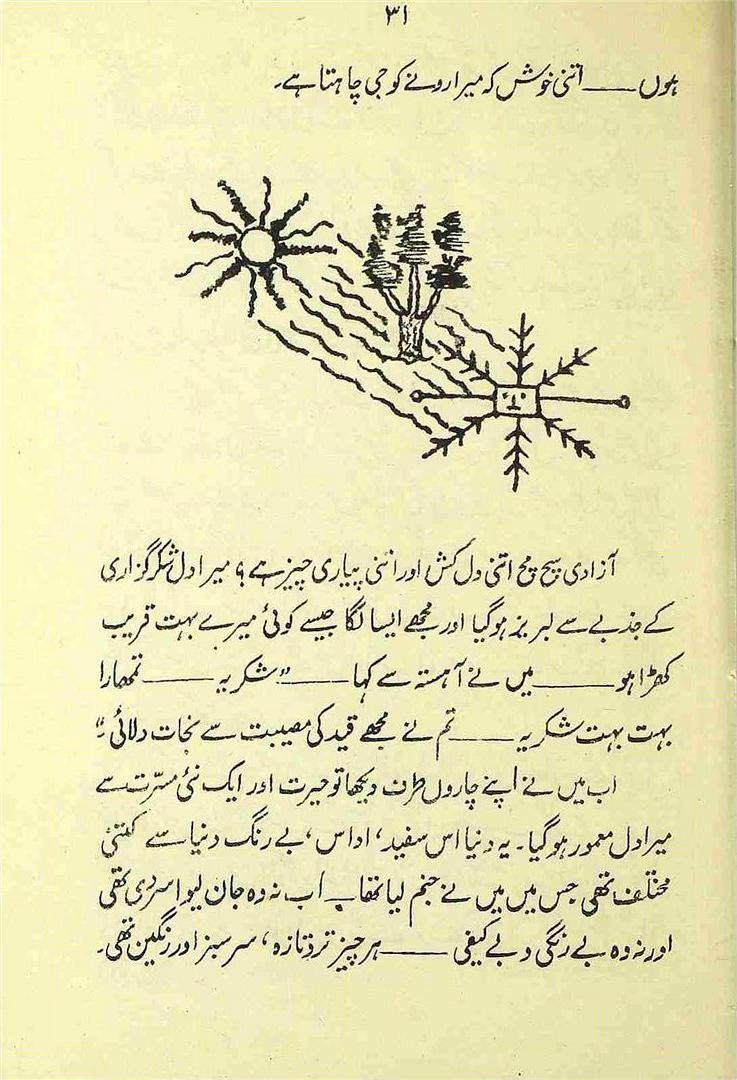 ۳۱
ہوں ـــــــ اتنی خوش کہ میرا رونے کو جی چاہتا ہے۔
آزادی سچ مچ اتنی دل کش اور اتنی پیاری چیز ہے ؟ میرا دل شکر گزاری
کے جذبے سے لبریز ہو گیا اور مجھے ایسا لگا جیسے کوئی میرے بہت قریب
کھڑا ہو ـــــــ میں نے آہستہ سے کہا ـــــــ ”شکریہ ـــــــ تمھارا
بہت بہت شکریہ ـــــــ تم نے مجھے قید کی مصیبت سے نجات دلائی۔“
اب میں نے اپنے چاروں طرف دیکھا تو حیرت اور ایک نئی مسرّت سے
میرا دل معمور ہو گیا۔ یہ دنیا اس سفید، اداس، بے رنگ دنیا سے کتنی
مختلف تھی جس میں میں نے جنم لیا تھا۔ اب نہ وہ جان لیوا سردی تھی
اور نہ وہ بے رنگی و بے کیفی ـــــــ ہر چیز تر و تازہ، سر سبز اور رنگین تھی۔